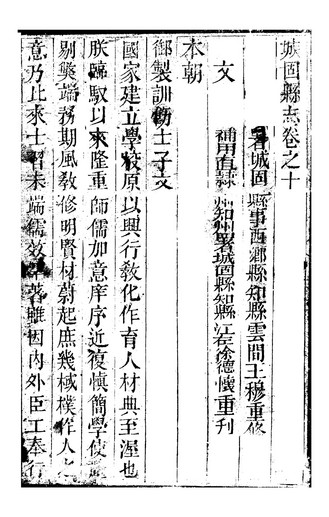 城固縣志卷之十
署城固縣事西鄉縣知縣雲間王穆重修
補用直隸州知州署城固縣知縣江右徐德懷重刋
文
本朝
御製訓飭士子文
國家建立學校原以興行教化作育人材典至渥也
朕臨馭以來隆重師儒加意庠序近復慎簡學使釐
剔獘端務期風教修明賢材蔚起庶幾棫樸作人之
意乃比來士習未端儒效罕著雖因內外臣工奉行